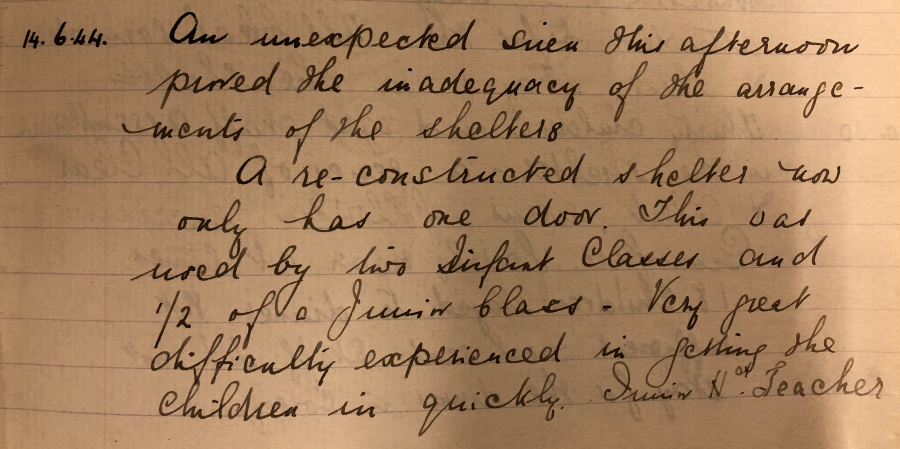 14.6.44. An unexpected siren this afternoon
proved the inadequacy of the arrange-
ments of the shelters
A re-constructed shelter now
only has one door. This was
used by two Infant Classes and
1/2 of a Junior Class - Very great
difficulty experienced in getting the
children in quickly. Junior Hd. Teacher